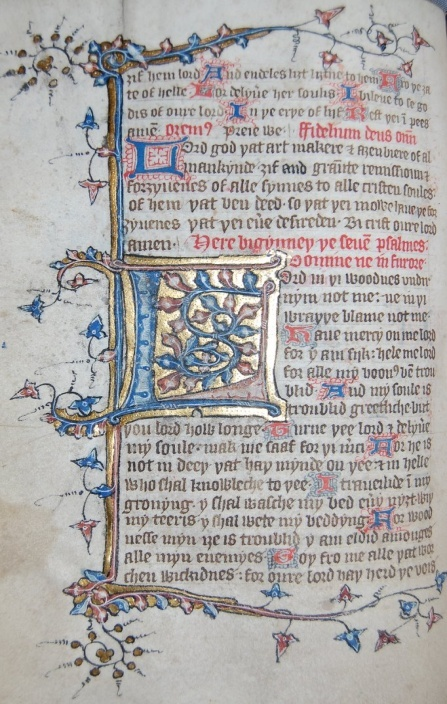 ȝif hem lord And endeles liȝt liȝtne to hem Fro ye ȝa
te of helle Lord delyūe her soulis I bileue to se go
dis of oure lord In ye erye of lif Rest yei ī pees
amē. oremꝰ Preie we. Fidelium deus oīm
Lord god yat art makere & aȝenbiere of al
mankynde ȝif and graūte remissioun &
forȝyuenes of alle synnes to alle cristen soules
of hem yat ben deed. so yat yei mowe haue ye for
ȝyuenes yat yei eūe desireden. Bi crist oure lord
amen. Here bigynney ye seuē psalmes.
Domine ne in furore.
Lord in yi woodnes undir
nym not me: ne in yi
wrappe blame not me.
Haue mercy on me lord
for y am sijk: hele me lord
for alle my boonꝰ bē trou
blid And my soule is
troublid greetliche: but
you lord houh longe. Turne yee lord & delyūe
my soule. mak me saaf for yi mīci For he is
not in deey yat hay mynde on yee: & in helle
who shal knowleche to yee. I traueilide ī my
gronyng. y shal wasche my bed eūy nyȝt wiy
my teeris y shal wete my beddyng. For wood
nesse myn yȝe is troublid y am eldid amonges
alle myn enemyes Goy fro me alle yat wor
chen wickidnes: for oure lord hay herd ye vois